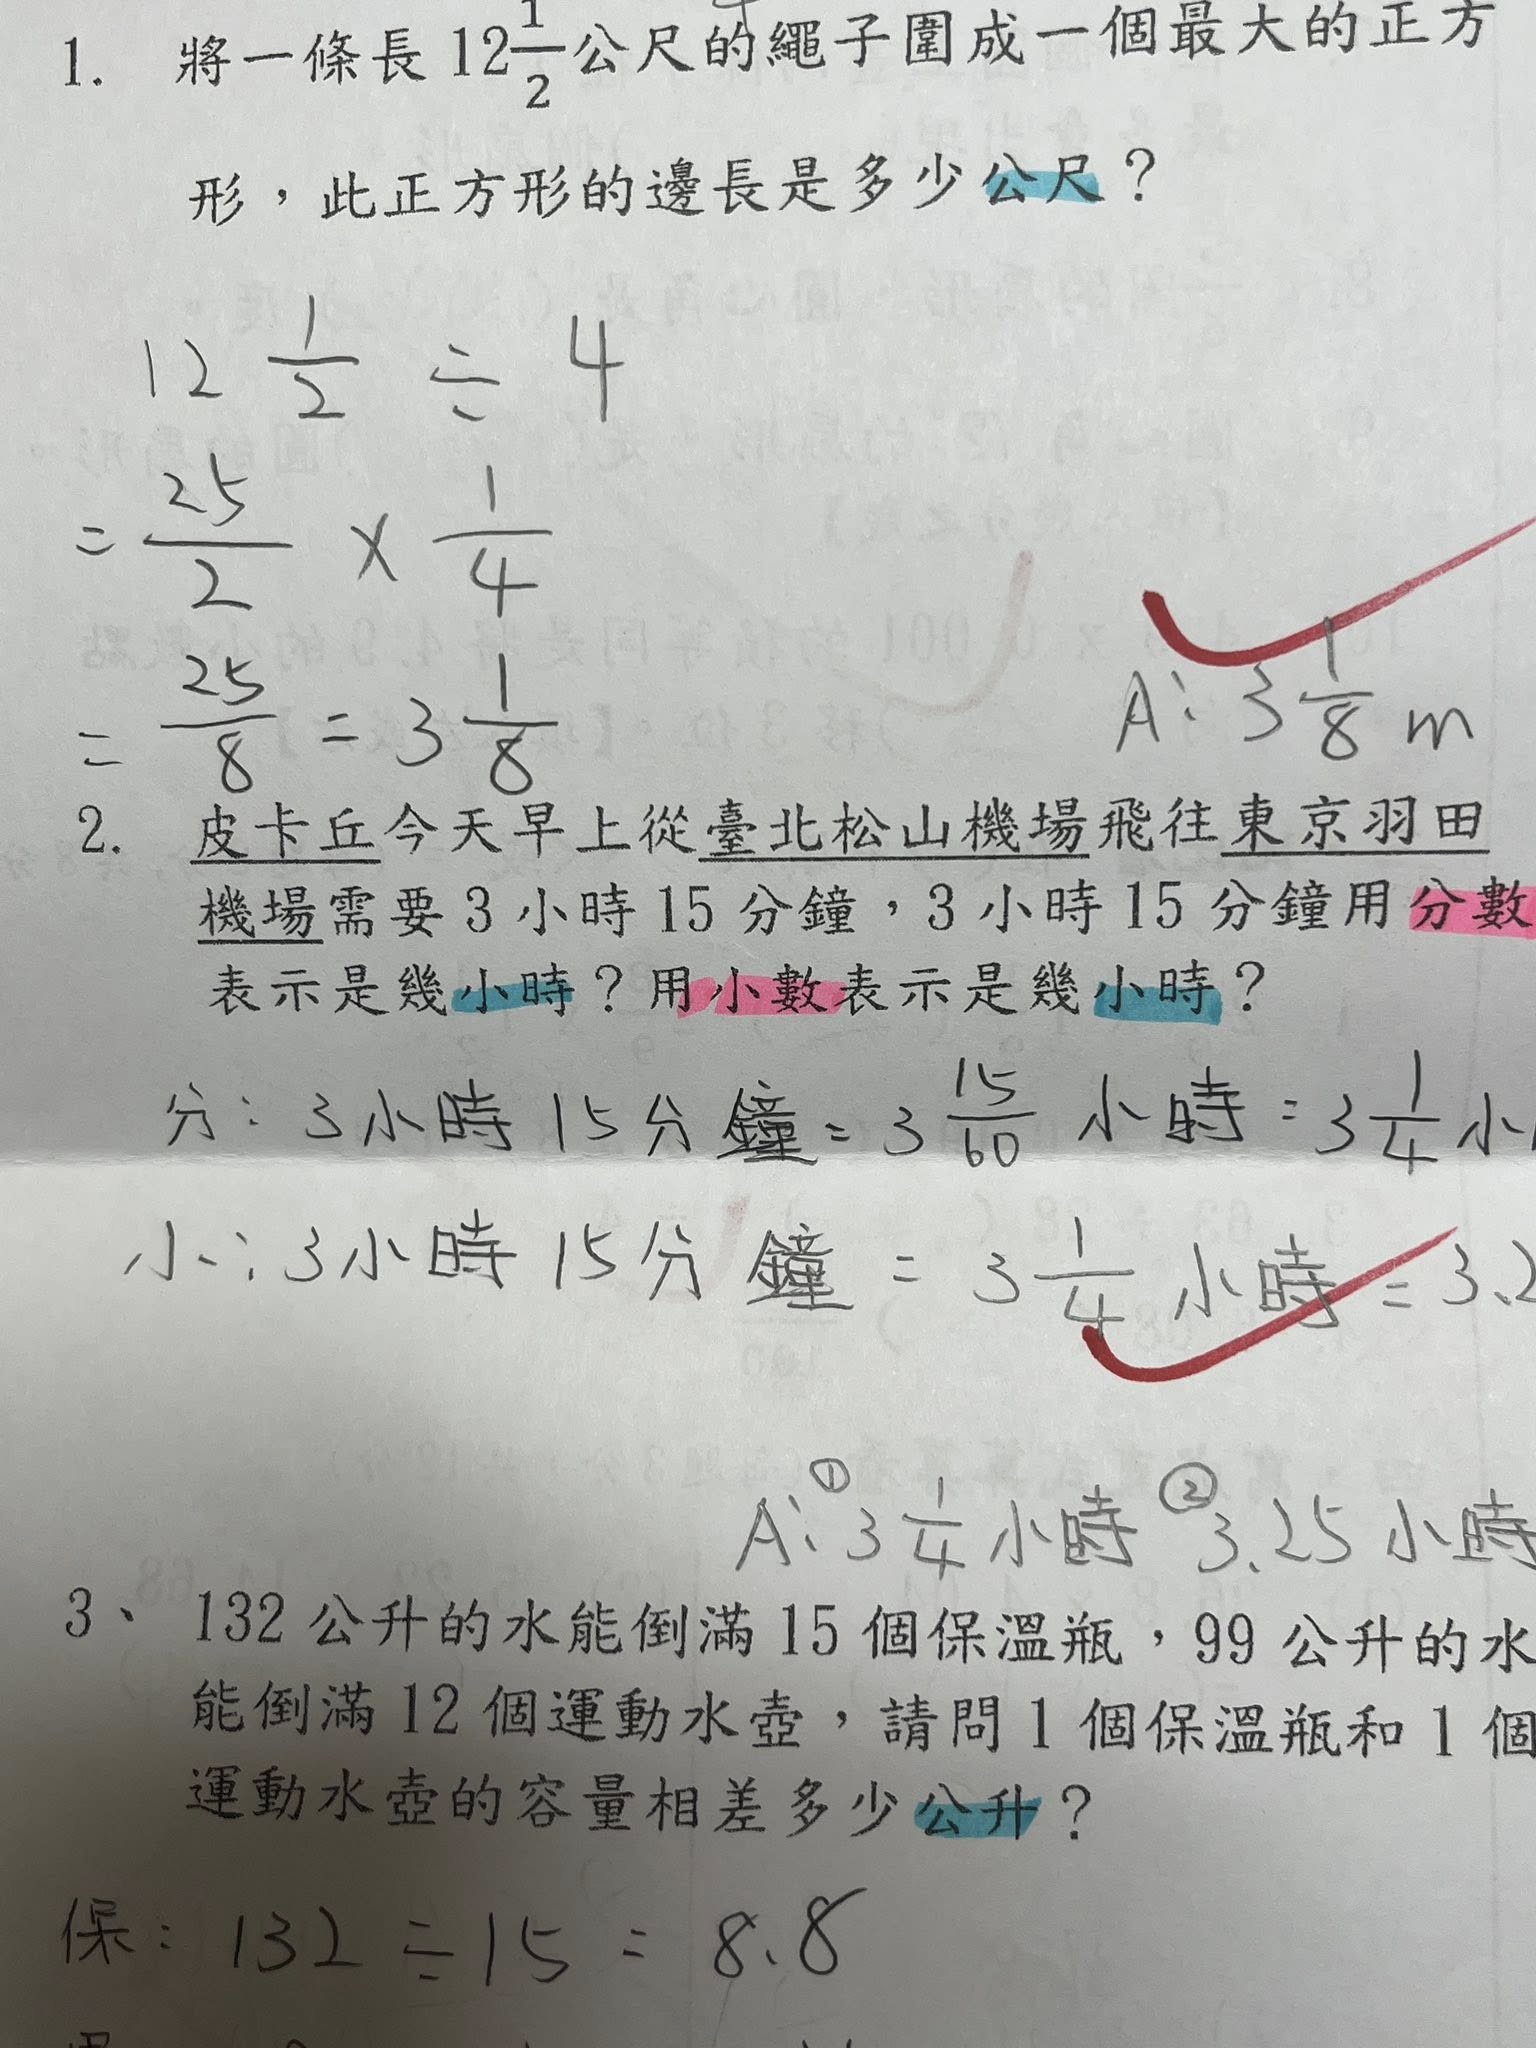 1. 將一條長 12 1/2 公尺的繩子圍成一個最大的正方
形，此正方形的邊長是多少公尺？
12 1/2 ÷ 4
= 25/2 × 1/4
= 25/8 = 3 1/8
A: 3 1/8 m
2. 皮卡丘今天早上從臺北松山機場飛往東京羽田
機場需要 3 小時 15 分鐘，3 小時 15 分鐘用分數
表示是幾小時？用小數表示是幾小時？
分: 3小時 15分鐘 = 3 15/60 小時 = 3 1/4 小
小: 3小時 15分鐘 = 3 1/4 小時 = 3.2
A: ① 3 1/4 小時 ② 3.25 小時
3、 132 公升的水能倒滿 15 個保溫瓶，99 公升的水
能倒滿 12 個運動水壺，請問 1 個保溫瓶和 1 個
運動水壺的容量相差多少公升？
保: 132 ÷ 15 = 8.8